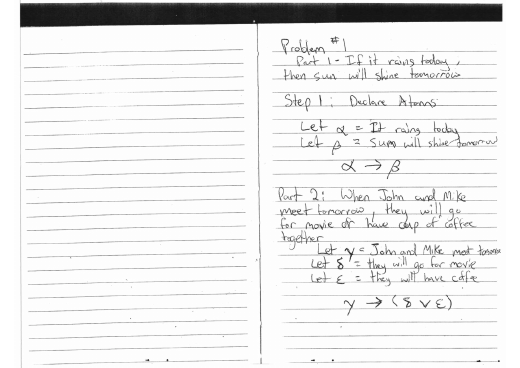 Problem #1
Part 1 - If it rains today,
then sun will shine tomorrow
Step 1: Declare Atoms
Let α = It rains today
Let β = Sun will shine tomorrow
α → β
Part 2: When John and Mike
meet tomorrow, they will go
for movie or have cup of coffee
together
Let γ = John and Mike meet tomorrow
Let δ = they will go for movie
Let ε = they will have coffe
γ → (δ ∨ ε)